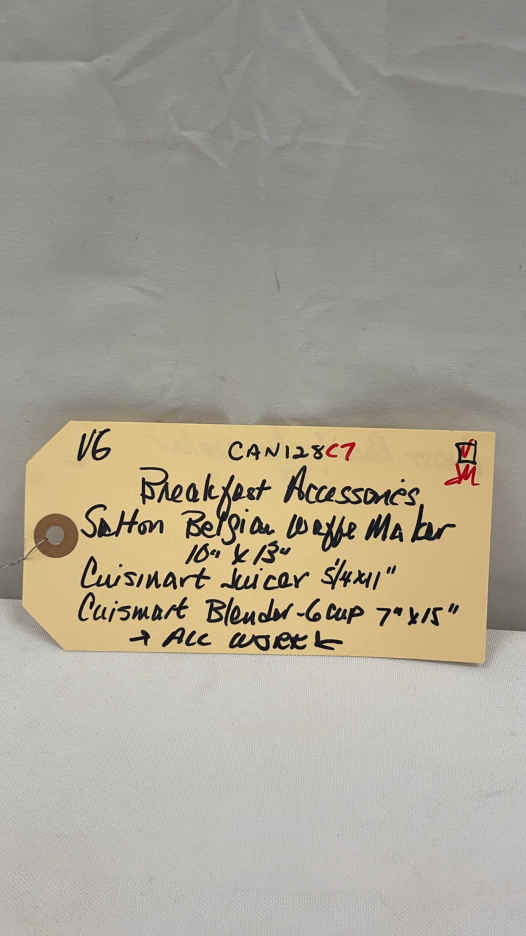 VG CAN128C7
Breakfast Accessories
Salton Belgian Waffle Maker
10" x 13"
Cuisinart Juicer 5 1/4 x 11"
Cuisinart Blender - 6 cup 7" x 15"
→ ALL WORK ←